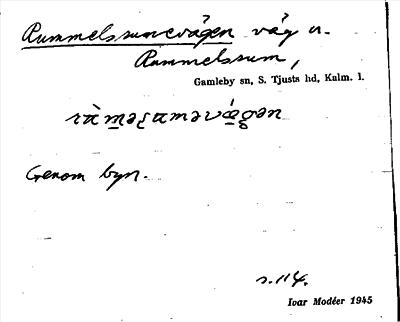 Rummelssumevägen väg n.
Rummelssum,
Gamleby sn, S. Tjusts hd, Kalm. l.
Genom byn.
s. 114.
Ivar Modéer 1945